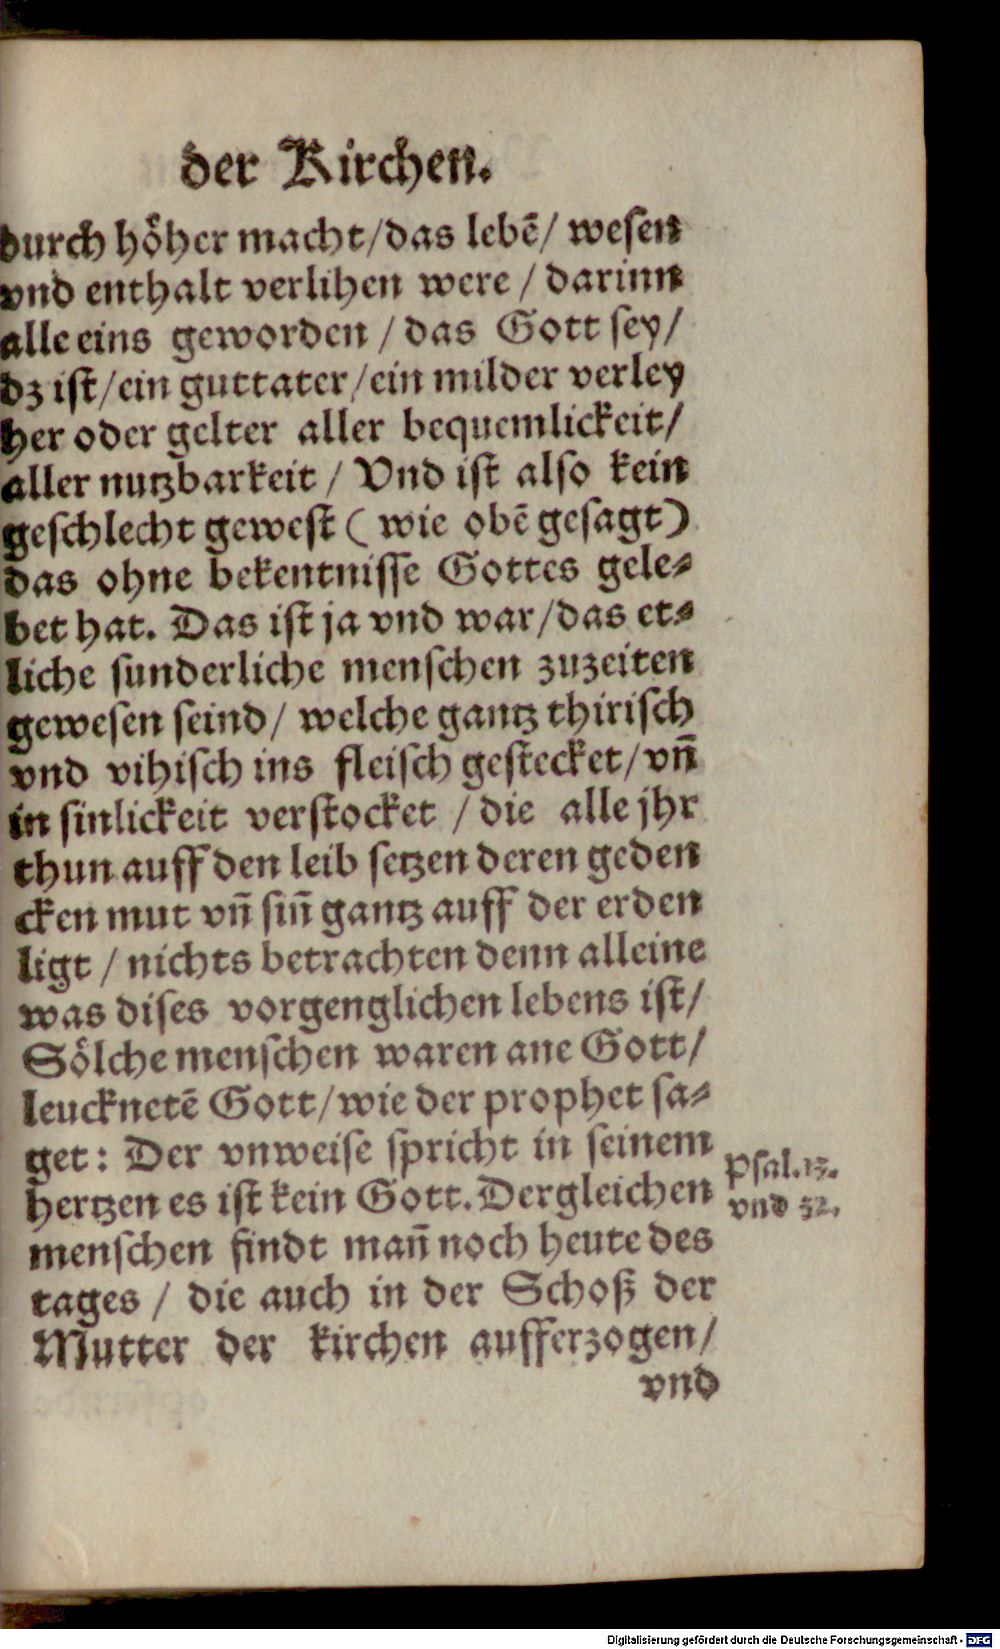 der Kirchen.
durch höher macht/das lebē/ wesen
vnd enthalt verlihen were / darinn
alle eins geworden / das Gott sey/
dz ist/ein guttater/ein milder verley
her oder gelter aller bequemlickeit/
aller nutzbarkeit / Vnd ist also kein
geschlecht gewest ( wie obē gesagt)
das ohne bekentnisse Gottes gele⸗
bet hat. Das ist ja vnd war/das et⸗
liche sunderliche menschen zuzeiten
gewesen seind/ welche gantz thirisch
vnd vihisch ins fleisch gestecket/ vn̄
in sinlickeit verstocket / die alle jhr
thun auff den leib setzen deren geden
cken mut vn̄ sin̄ gantz auff der erden
ligt / nichts betrachten denn alleine
was dises vorgenglichen lebens ist/
Sölche menschen waren ane Gott/
leucknetē Gott/wie der prophet sa⸗
get: Der vnweise spricht in seinem
hertzen es ist kein Gott. Dergleichen
menschen findt man̄ noch heute des
tages / die auch in der Schoß der
Mutter der kirchen aufferzogen/
vnd
Psal.13.
vnd 52.
Digitalisierung gefördert durch die Deutsche Forschungsgemeinschaft - DFG